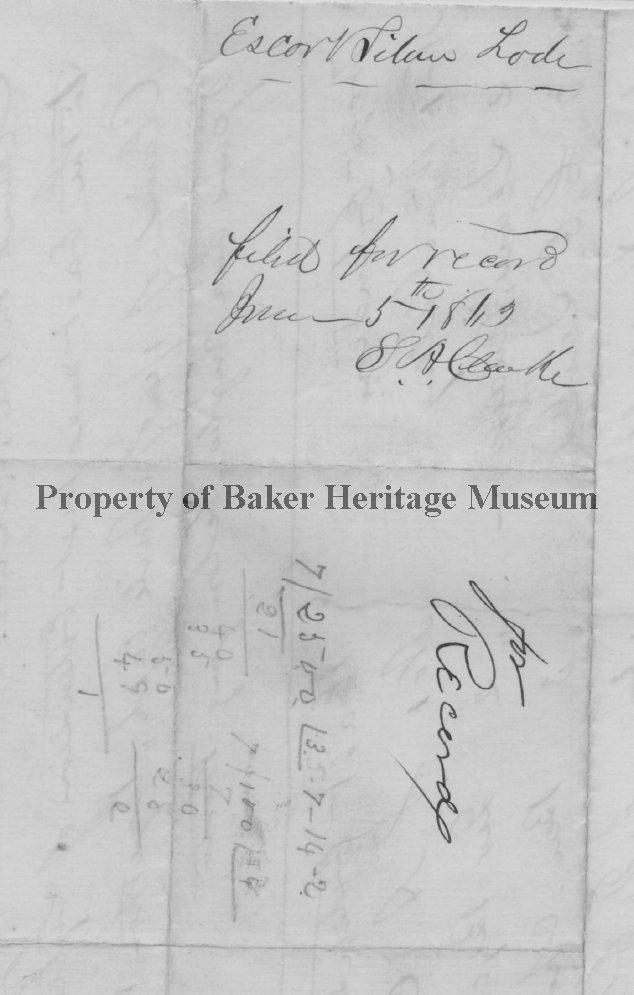 Escort Silver Lode
filed for record
June 5th 1863
S. A. Clarke
Property of Baker Heritage Museum
for
Record
7/2540/
21
40
35
50
49
1
7/100/14
7
28
2